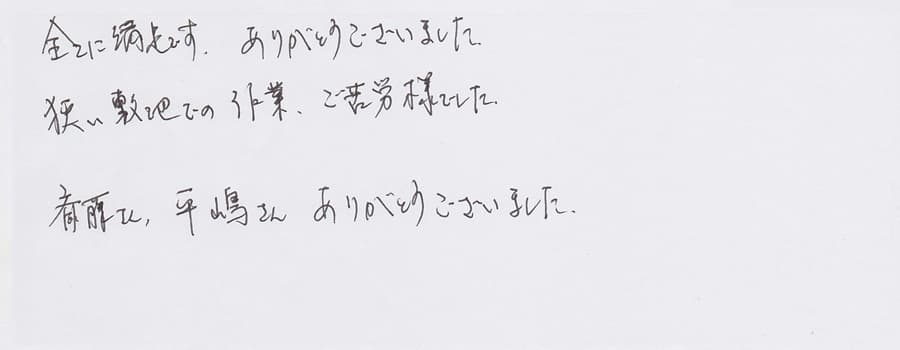 全てに満点です. ありがとうございました.
狭い敷地での作業、ご苦労様でした.
斉藤さん, 平嶋さん ありがとうございました.